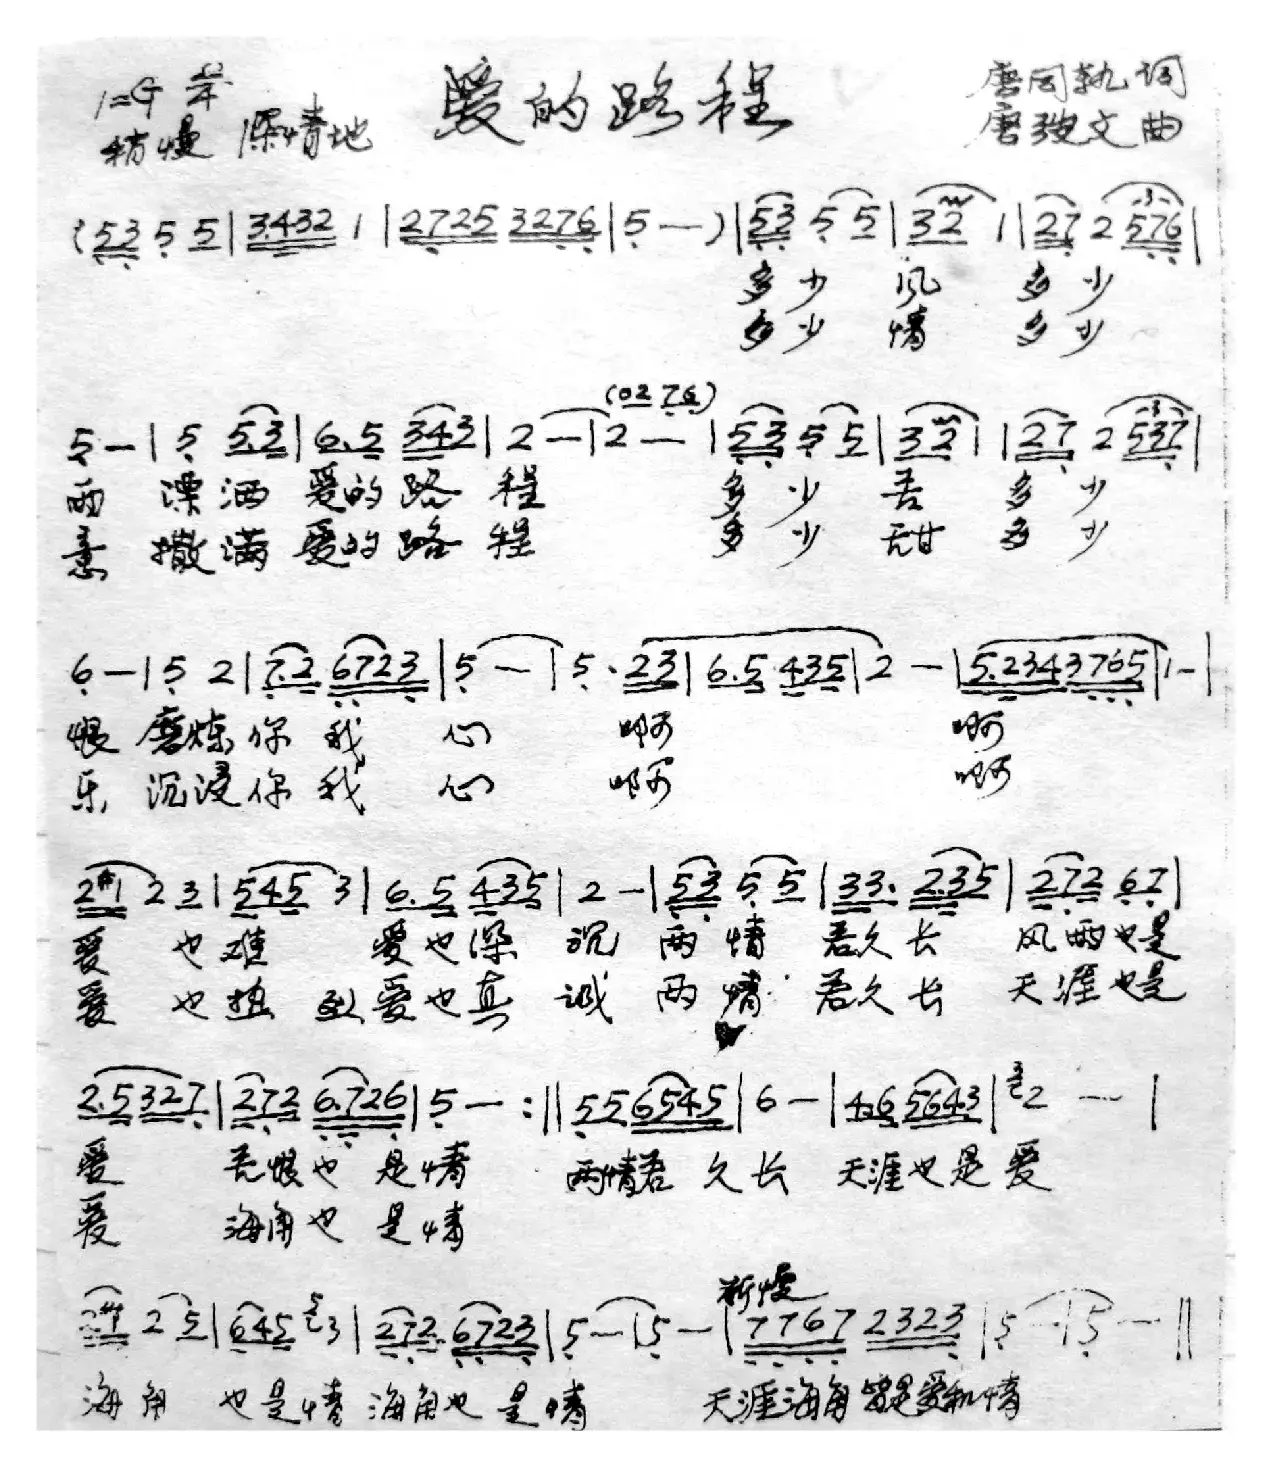 爱的路程
1=G 2/4
稍慢 深情地
唐同执词
唐彼文曲
(5 3 5 5 | 3.432 1 | 2725 3276 | 5 — ) | 53 5 5 | 32 1 | 27 2 576 |
多少 风 多少
多少 情 多少
(02 76)
5 — | 5 53 | 6.5 343 | 2 — | 2 — | 53 5 5 | 32 1 | 27 2 537 |
雨 漂洒 爱的路 程 多少 苦 多少
意 撒满 爱的路 程 多少 甜 多少
6 — | 5 2 | 7.2 6723 | 5 — | 5 . 23 | 6.5 435 | 2 — | 5.2343765 | 1 — |
恨 磨炼你 我 心 啊 啊
乐 沉浸你 我 心 啊 啊
2#1 2 3 | 545 3 | 6.5 435 | 2 — | 53 5 5 | 33. 2.35 | 272 67 |
爱 也难 爱也深 沉 两情 若久长 风雨也是
爱 也热 烈爱也真 诚 两情 若久长 天涯也是
2.5327 | 272 6.726 | 5 — :|| 55 6545 | 6 — | 46 5643 | 3 2 — |
爱 苦恨也 是情 两情若 久长 天涯也是爱
爱 海角也 是情
渐慢
2#1 2 5 | 645 5 3 | 272. 6723 | 5 — | 5 — | 7767 2323 | 5 — | 5 — ||
海角 也是情 海角也 是情 天涯海角皆是爱和情